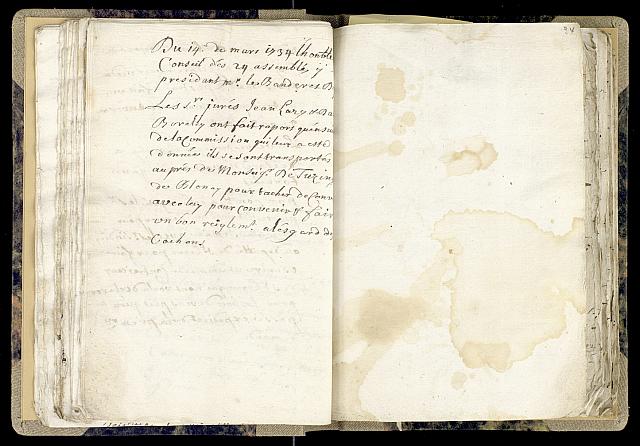 Du 14. de mars 1734 lhonble
Conseil des 24 assemblés, y
presidant mr. les Banderet B
Les sr. jurés Jean Lary & Da
Borelly ont fait raport quensu
de la Commission qui leur a esté
données ils se sont transportés
auprés de Monsieur De
de Blonay pour tacher de Conv
avec luy pour convenir & fair
un bon reiglemt. a lésgard des
Cochons
24